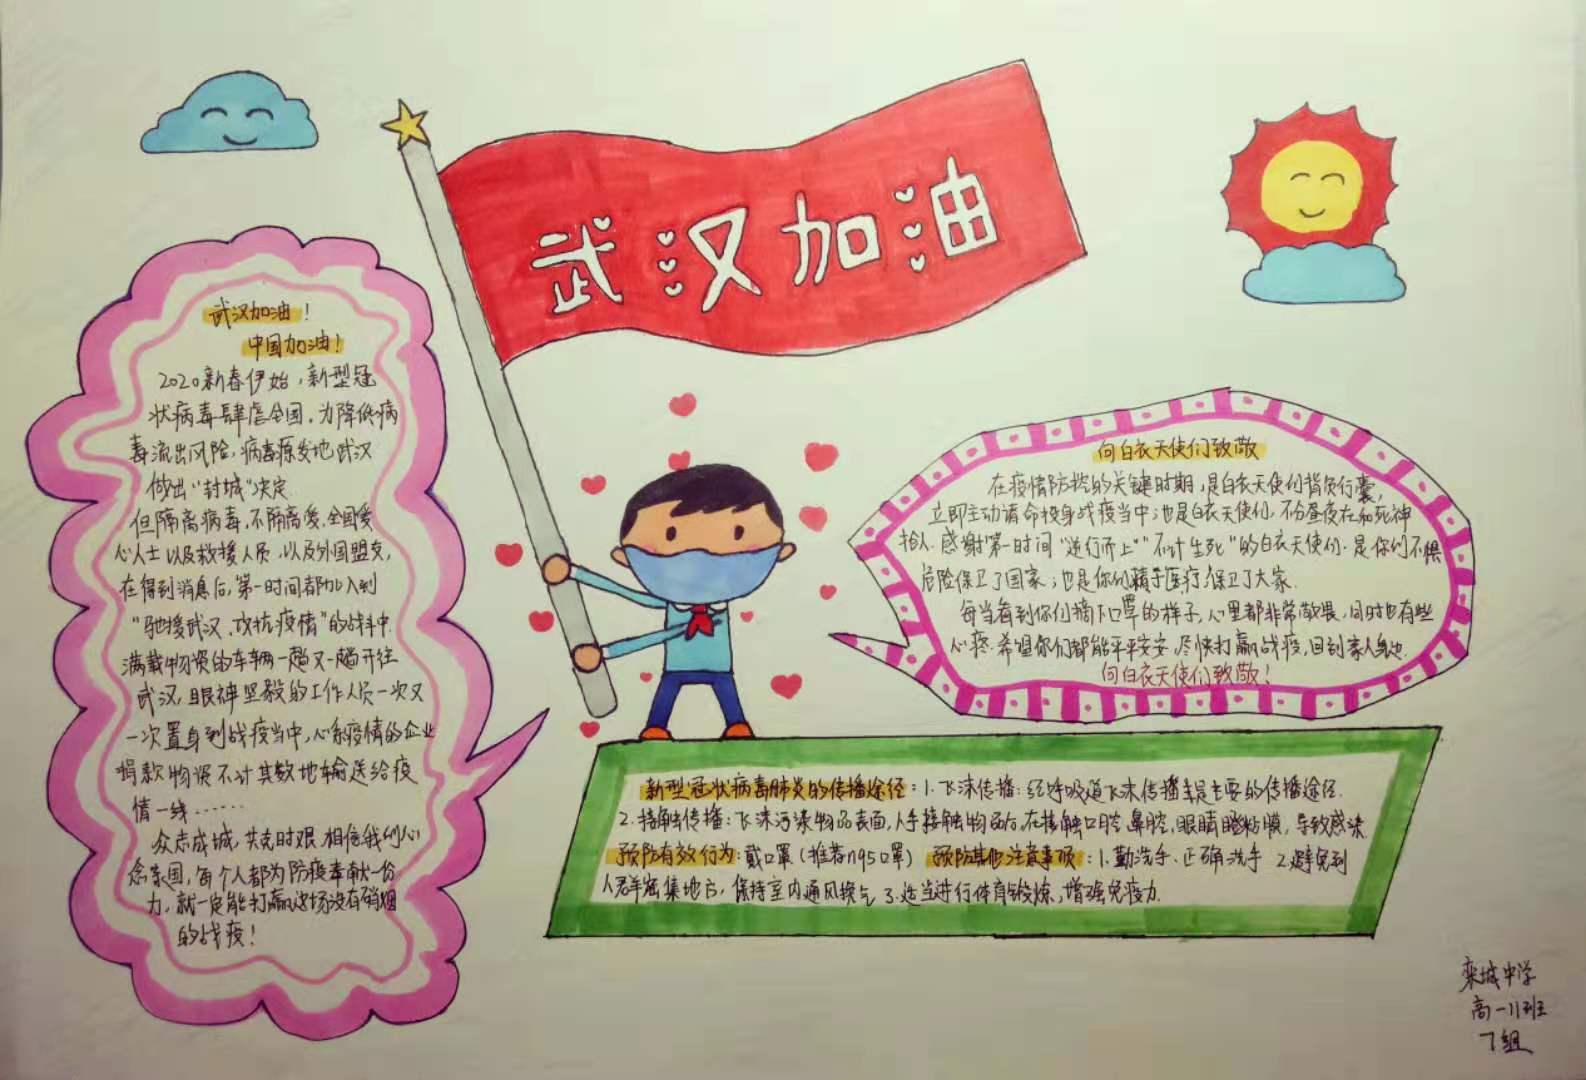 武汉加油
武汉加油!
中国加油!
2020新春伊始,新型冠
状病毒肆虐全国,为降低病
毒流出风险,病毒原发地武汉
做出“封城”决定.
但隔离病毒,不隔离爱,全国爱
心人士以及救援人员,以及外国盟友,
在得到消息后,第一时间都加入到
“驰援武汉,攻抗疫情”的战斗中.
满载物资的车辆一趟又一趟开往
武汉,眼神坚毅的工作人员一次又
一次置身到战疫当中,心系疫情的企业
捐款物资不计其数地输送给疫
情一线……
众志成城,共克时艰.相信我们心
念家国,每个人都为防疫奉献一份
力,就一定能打赢这场没有硝烟
的战疫!
向白衣天使们致敬
在疫情防控的关键时期,是白衣天使们背负行囊,
立即主动请命投身战疫当中;也是白衣天使们,不分昼夜在和死神
抢人.感谢第一时间“逆行而上”“不计生死”的白衣天使们.是你们不惧
危险保卫了国家;也是你们精于医疗保卫了大家.
每当看到你们摘下口罩的样子,心里都非常敬畏,同时也有些
心疼.希望你们都能平平安安,尽快打赢战疫,回到家人身边.
向白衣天使们致敬!
新型冠状病毒肺炎的传播途径:1.飞沫传播:经呼吸道飞沫传播是主要的传播途径.
2.接触传播:飞沫污染物品表面,人手接触物品后,在接触口腔,鼻腔,眼睛粘膜,导致感染
预防有效行为:戴口罩(推荐n95口罩) 预防其他注意事项:1.勤洗手、正确洗手 2.避免到
人群密集地方,保持室内通风换气 3.适当进行体育锻炼,增强免疫力.
栾城中学
高一11班
7组